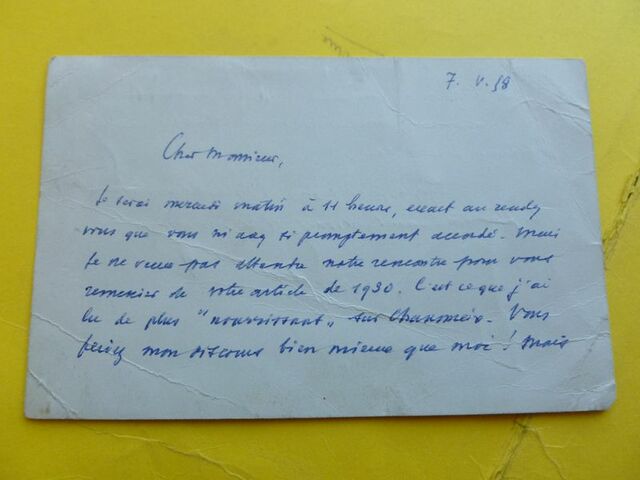 7. V. 58
Cher Monsieur,
Je serai mercredi matin à 11 heure, exact au rendez
vous que vous m'avez si promptement accordé. Mais
je ne veux pas attendre notre rencontre pour vous
remercier de votre article de 1930. C'est ce que j'ai
lu de plus "nourrissant" sur Vous
feriez mon discours bien mieux que moi! Mais